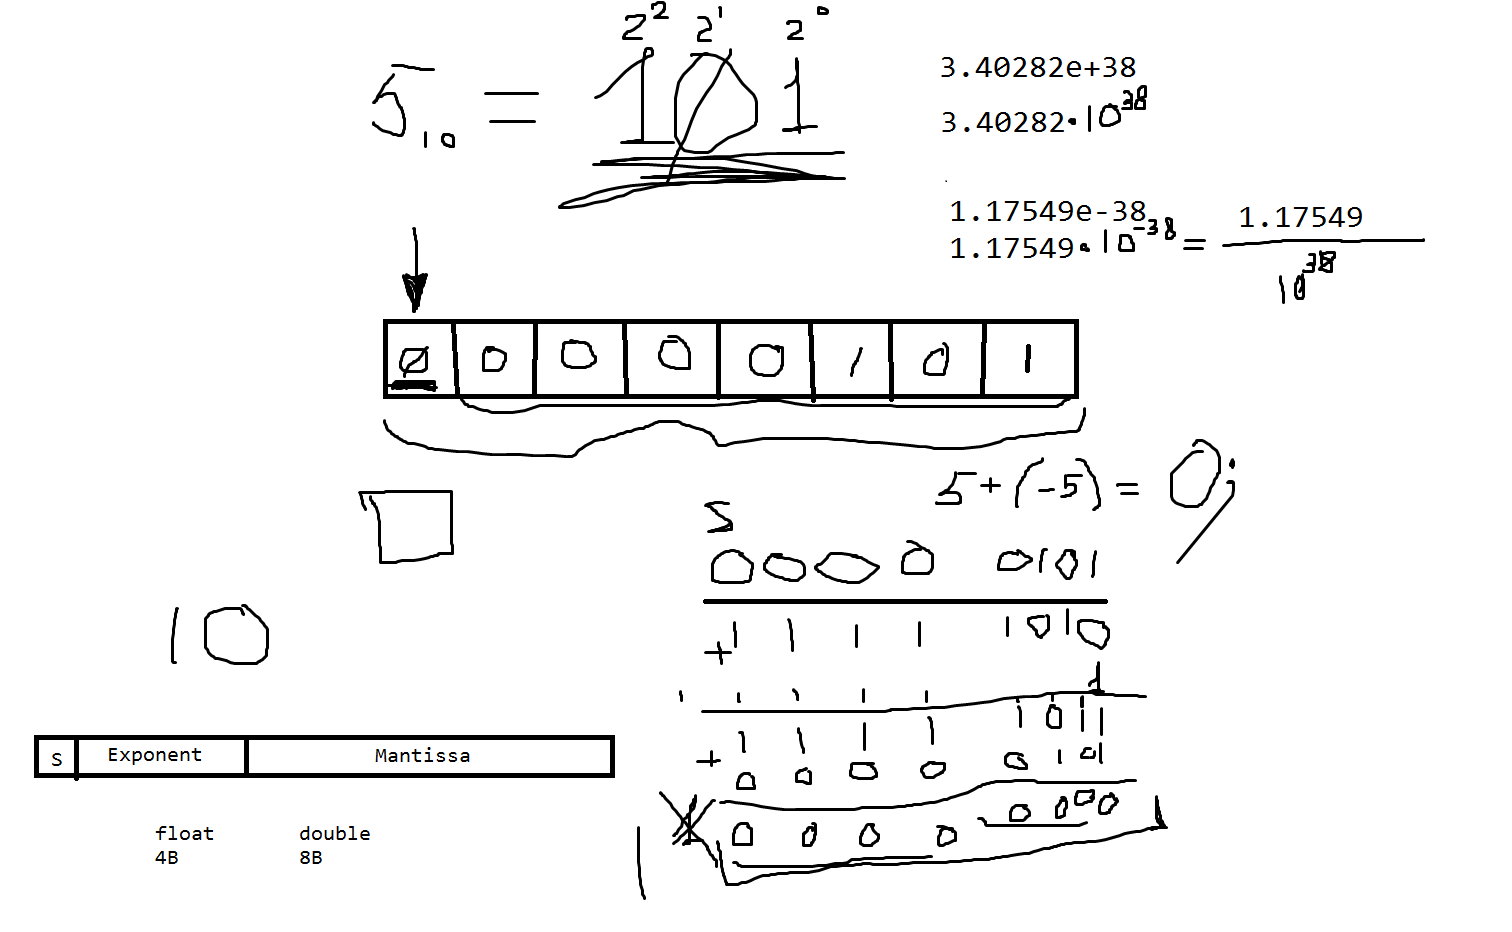 2² 2¹ 2⁰
5₁₀ = 101
3.40282e+38
3.40282·10³⁸
1.17549e-38
1.17549·10⁻³⁸ = 1.17549
10³⁸
0 0 0 0 0 1 0 1
5+(-5) = 0;
0000 0101
+1111 1010
1
1 1 1 1 1
1111 1011
+0000 0101
1 0000 0000
10
S Exponent Mantissa
float double
4B 8B